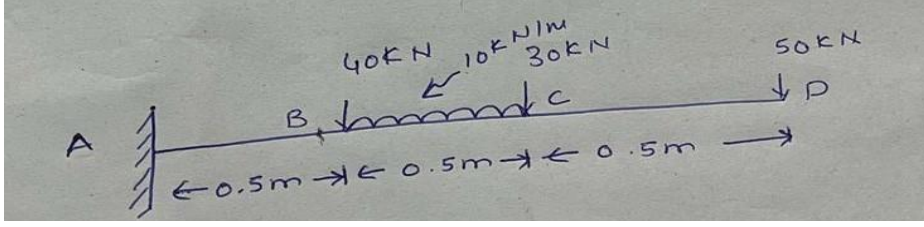 40KN 10KN/m
30KN
50KN
A B C D
0.5m 0.5m 0.5m